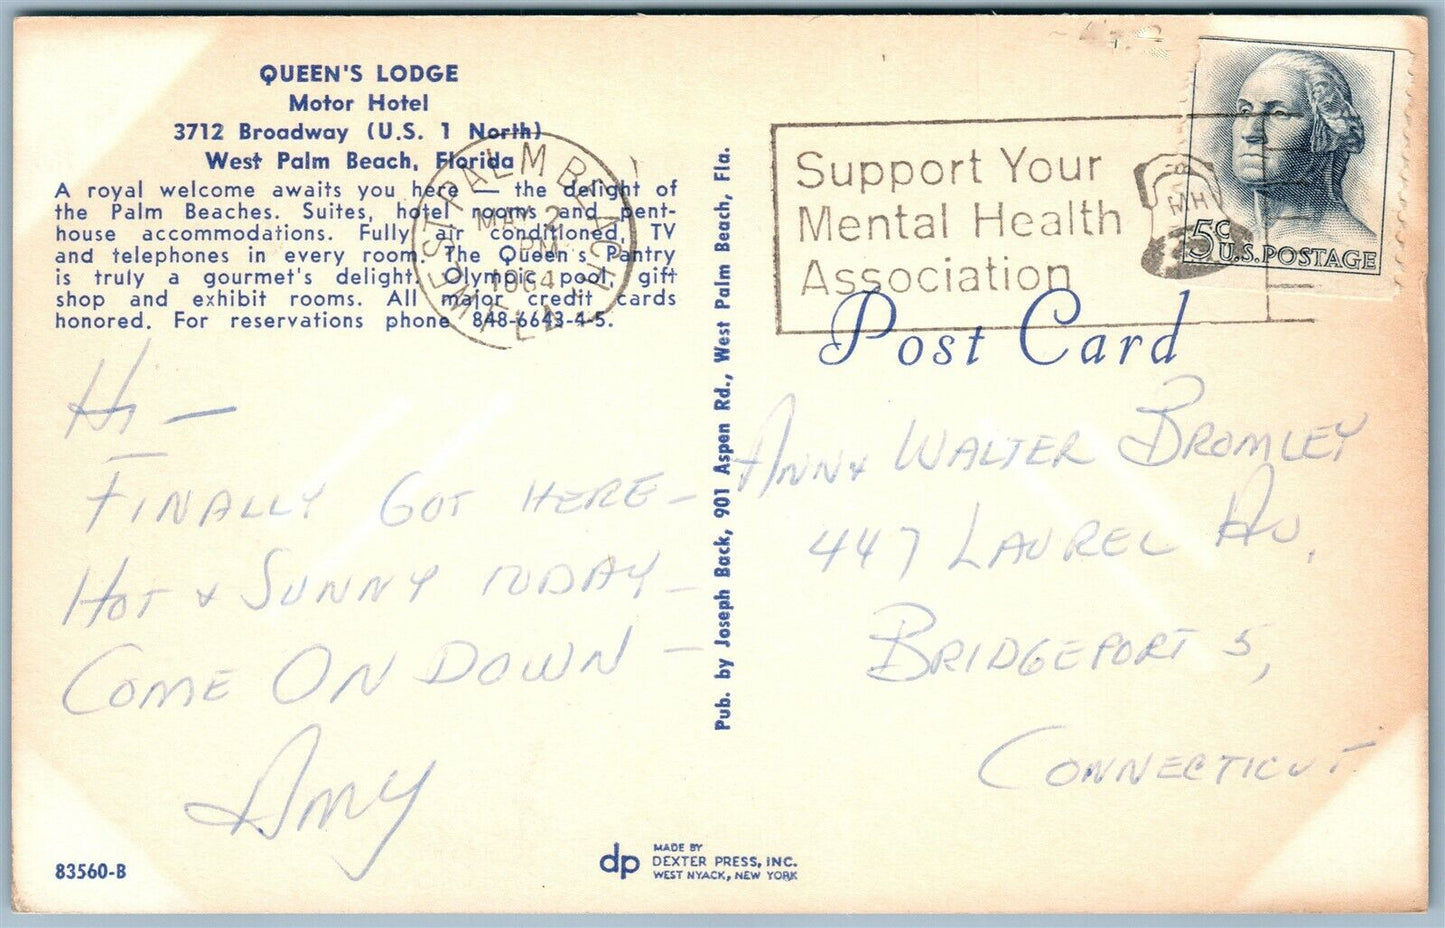 QUEEN'S LODGE
Motor Hotel
3712 Broadway (U.S. 1 North)
West Palm Beach, Florida
A royal welcome awaits you here — the delight of
the Palm Beaches. Suites, hotel rooms and pent-
house accommodations. Fully air conditioned, TV
and telephones in every room. The Queen's Pantry
is truly a gourmet's delight. Olympic pool, gift
shop and exhibit rooms. All major credit cards
honored. For reservations phone 848-6643-4-5.
WEST PALM BEACH
MAY 2
PM
1964
FLA
Hi —
FINALLY GOT HERE —
HOT & SUNNY TODAY —
COME ON DOWN —
AMY
83560-B
Pub. by Joseph Back, 901 Aspen Rd., West Palm Beach, Fla.
dp
MADE BY
DEXTER PRESS, INC.
WEST NYACK, NEW YORK
Support Your
Mental Health
Association
5c
U.S. POSTAGE
Post Card
ANN & WALTER BROMLEY
447 LAUREL AV.
BRIDGEPORT 5,
CONNECTICUT